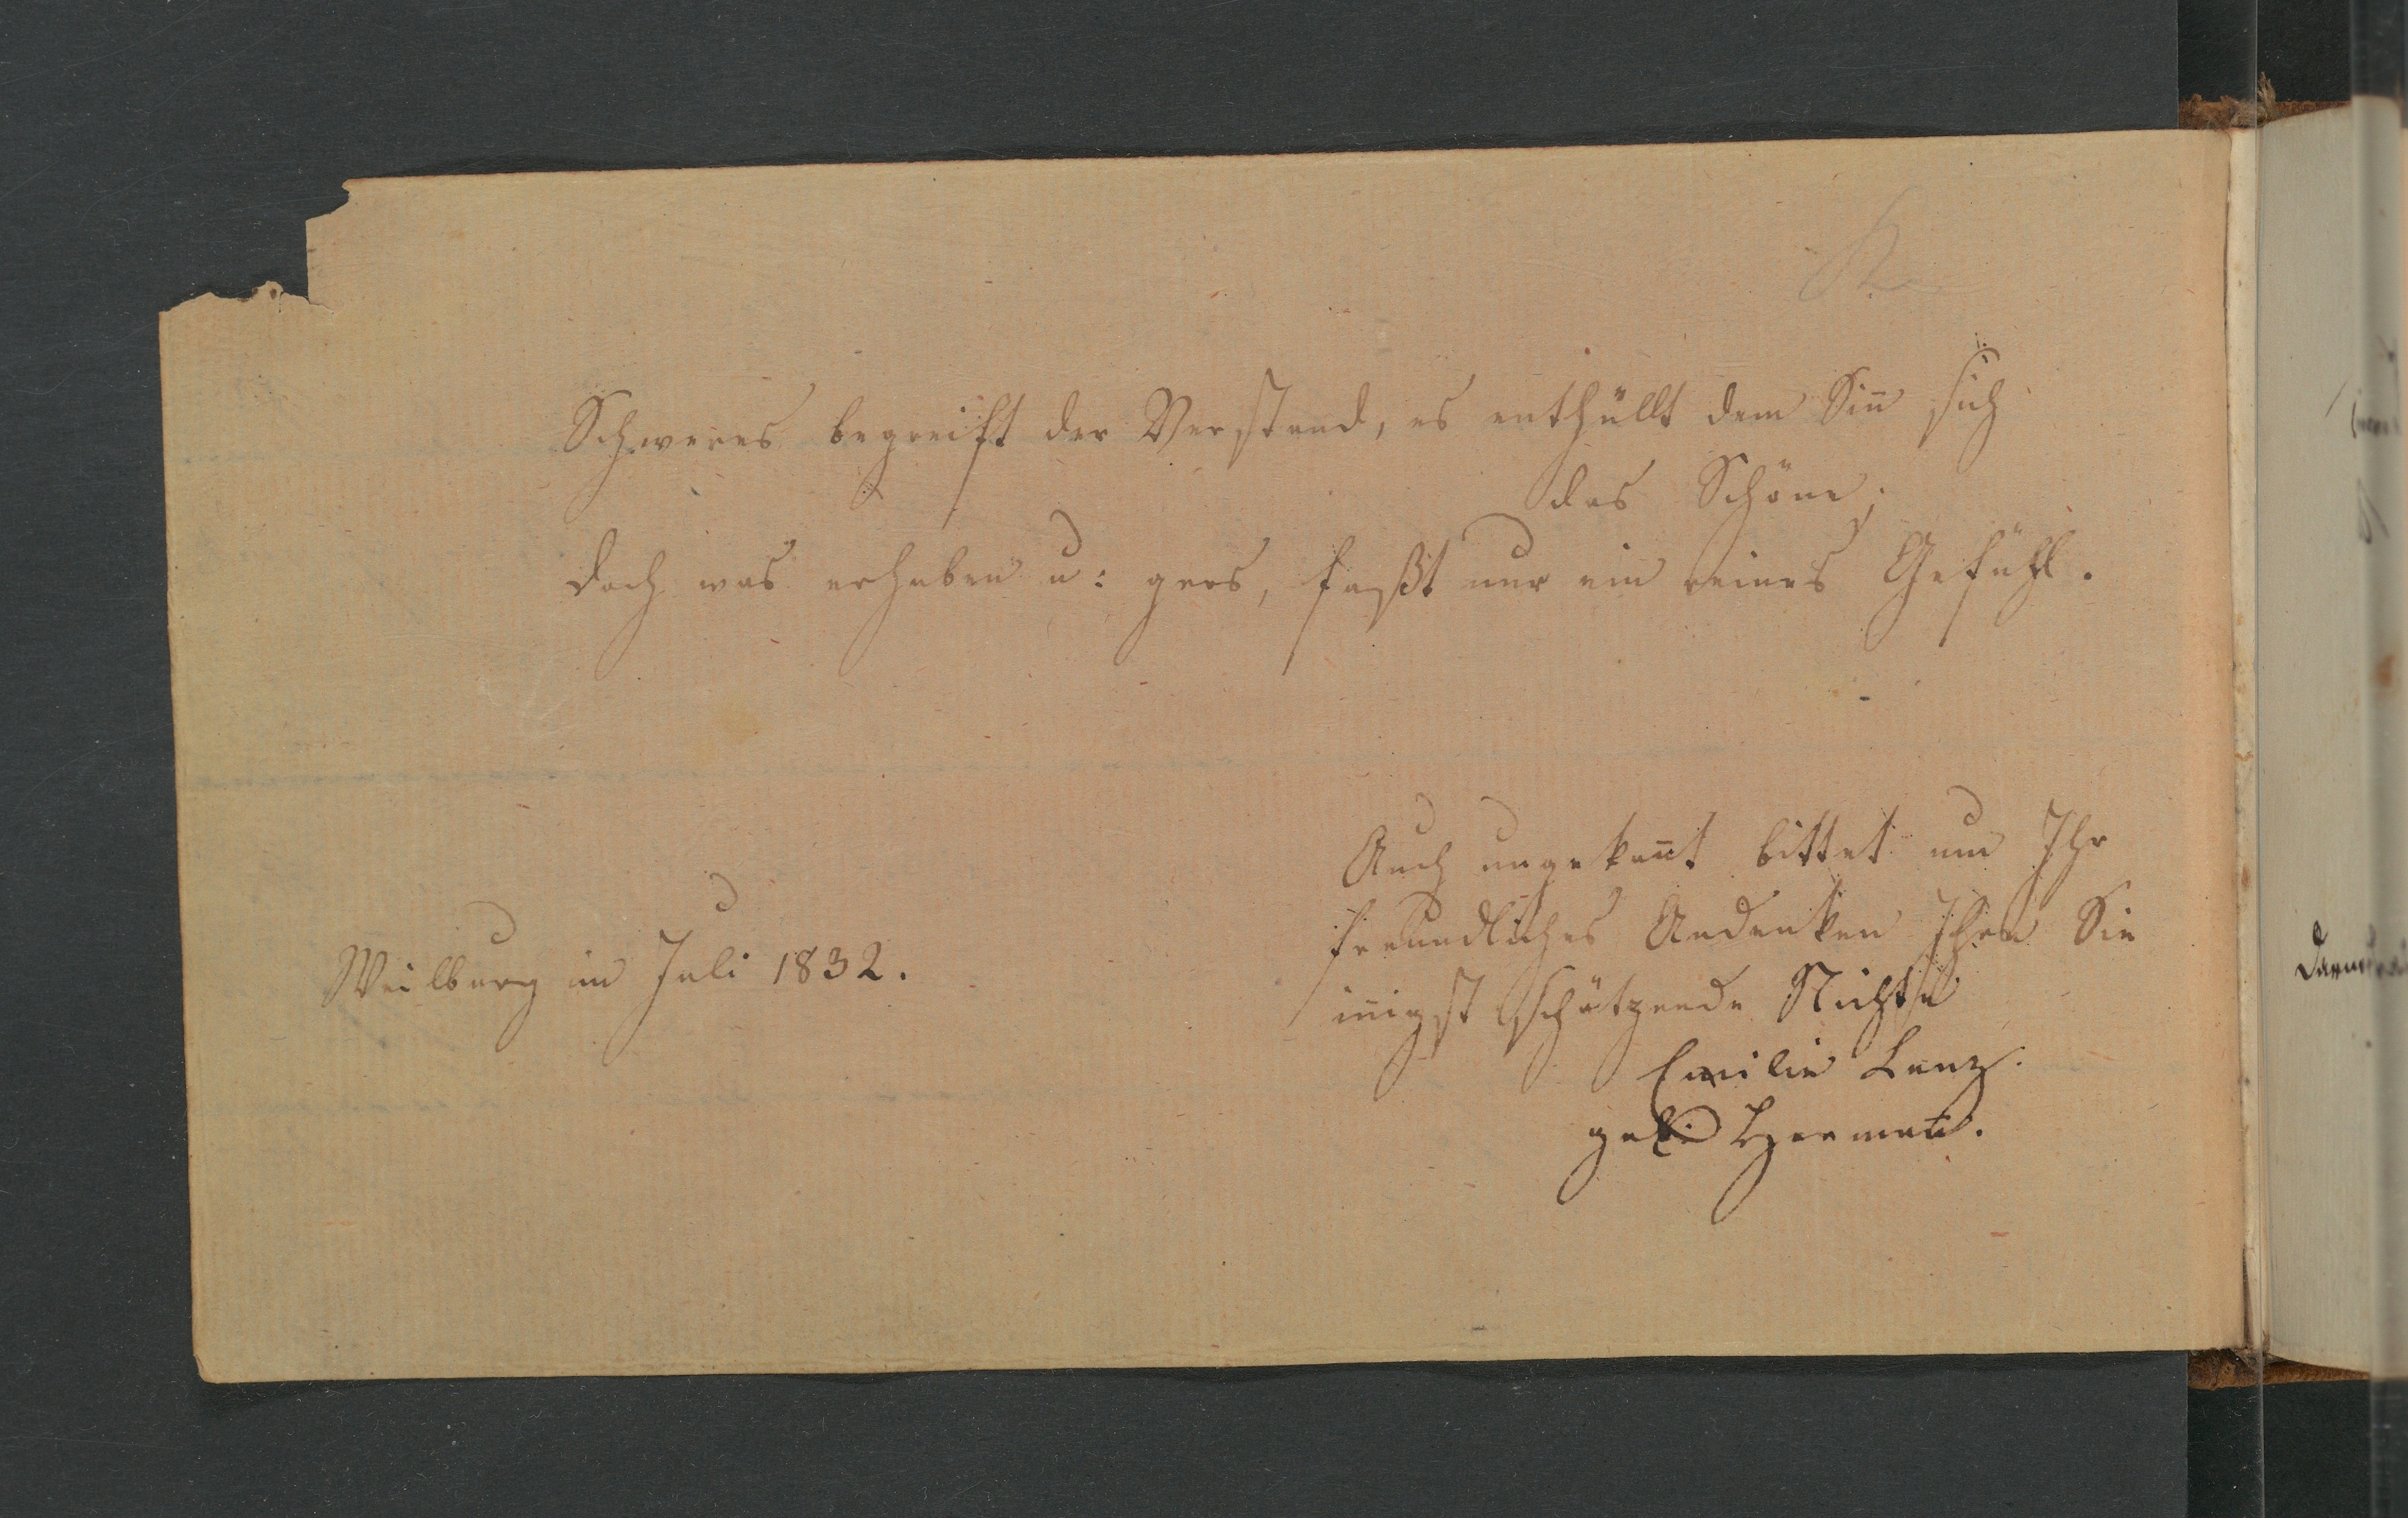 Schweres begreift der Verstand, es enthüllt dem Siñ sich
das Schöne;
doch was erhaben u: gros, faßt nur ein reines Gefühl.
Auch ungekañt bittet um Ihr
freundliches Andenken Ihre Sie
iñigst schätzende Nichte
Weilburg im Juli 1832.
Emilie Lenz.
geb: Hermañ.